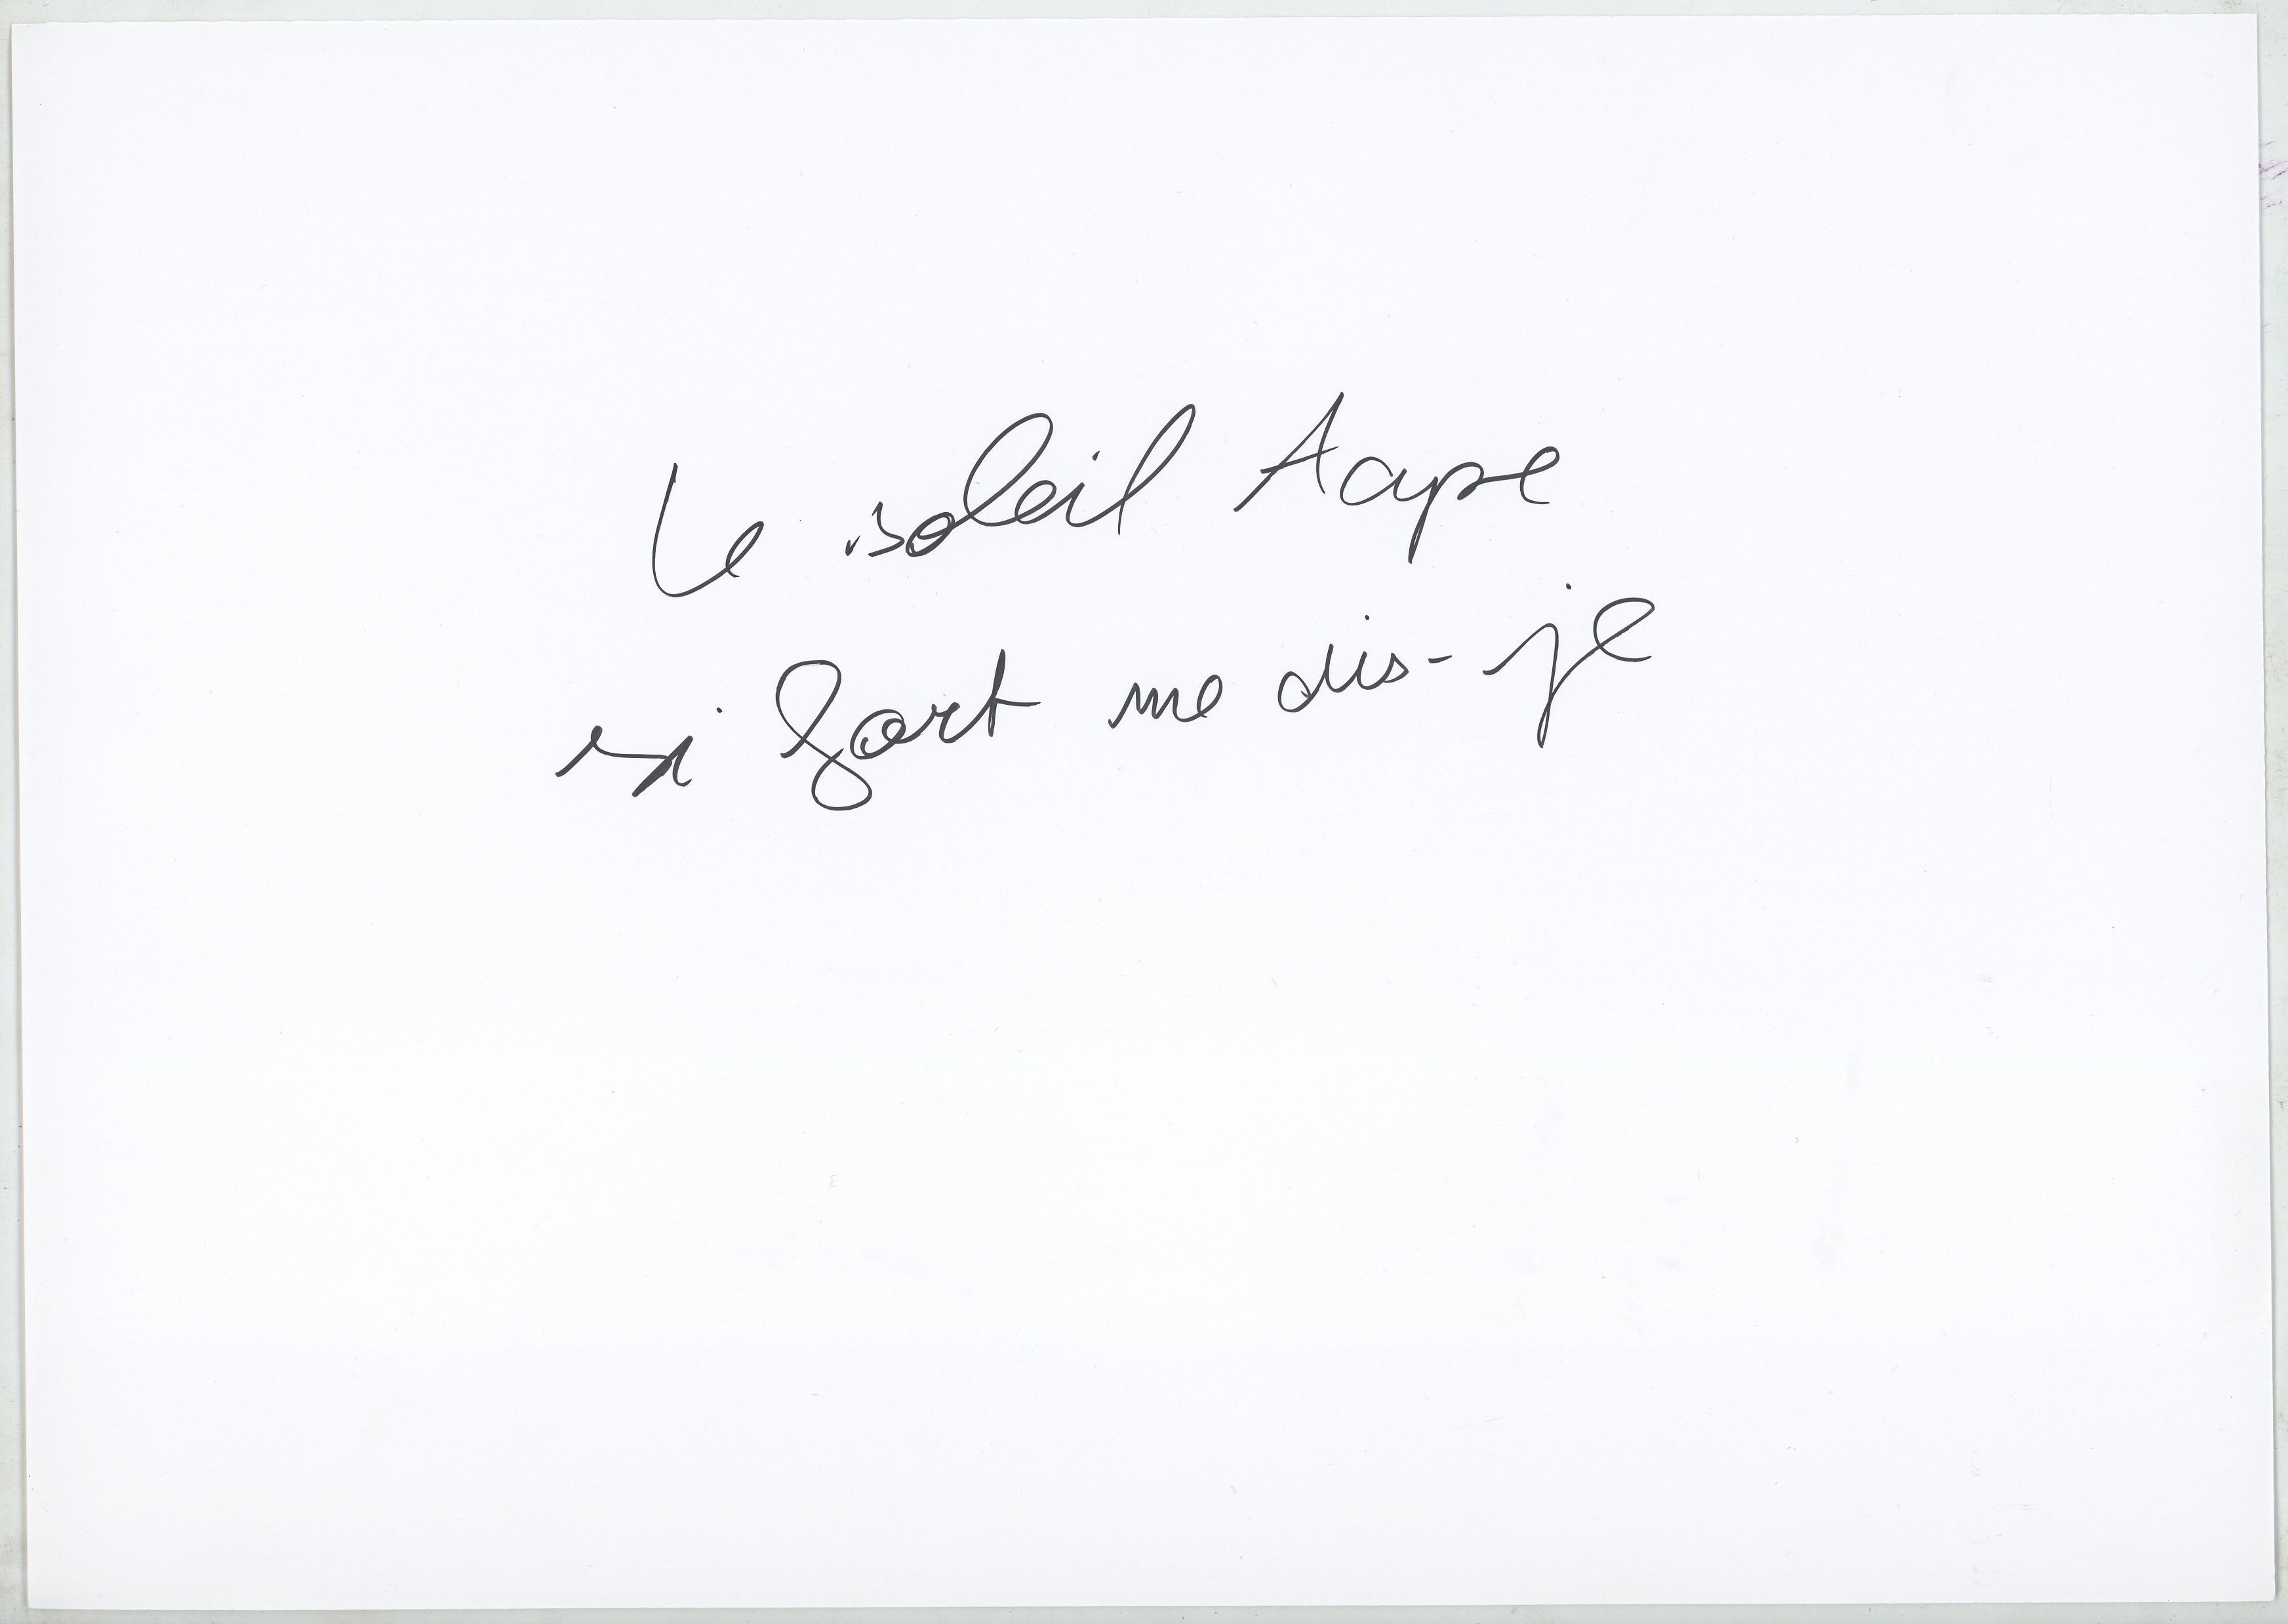 Le soleil tape
si fort me dis-je